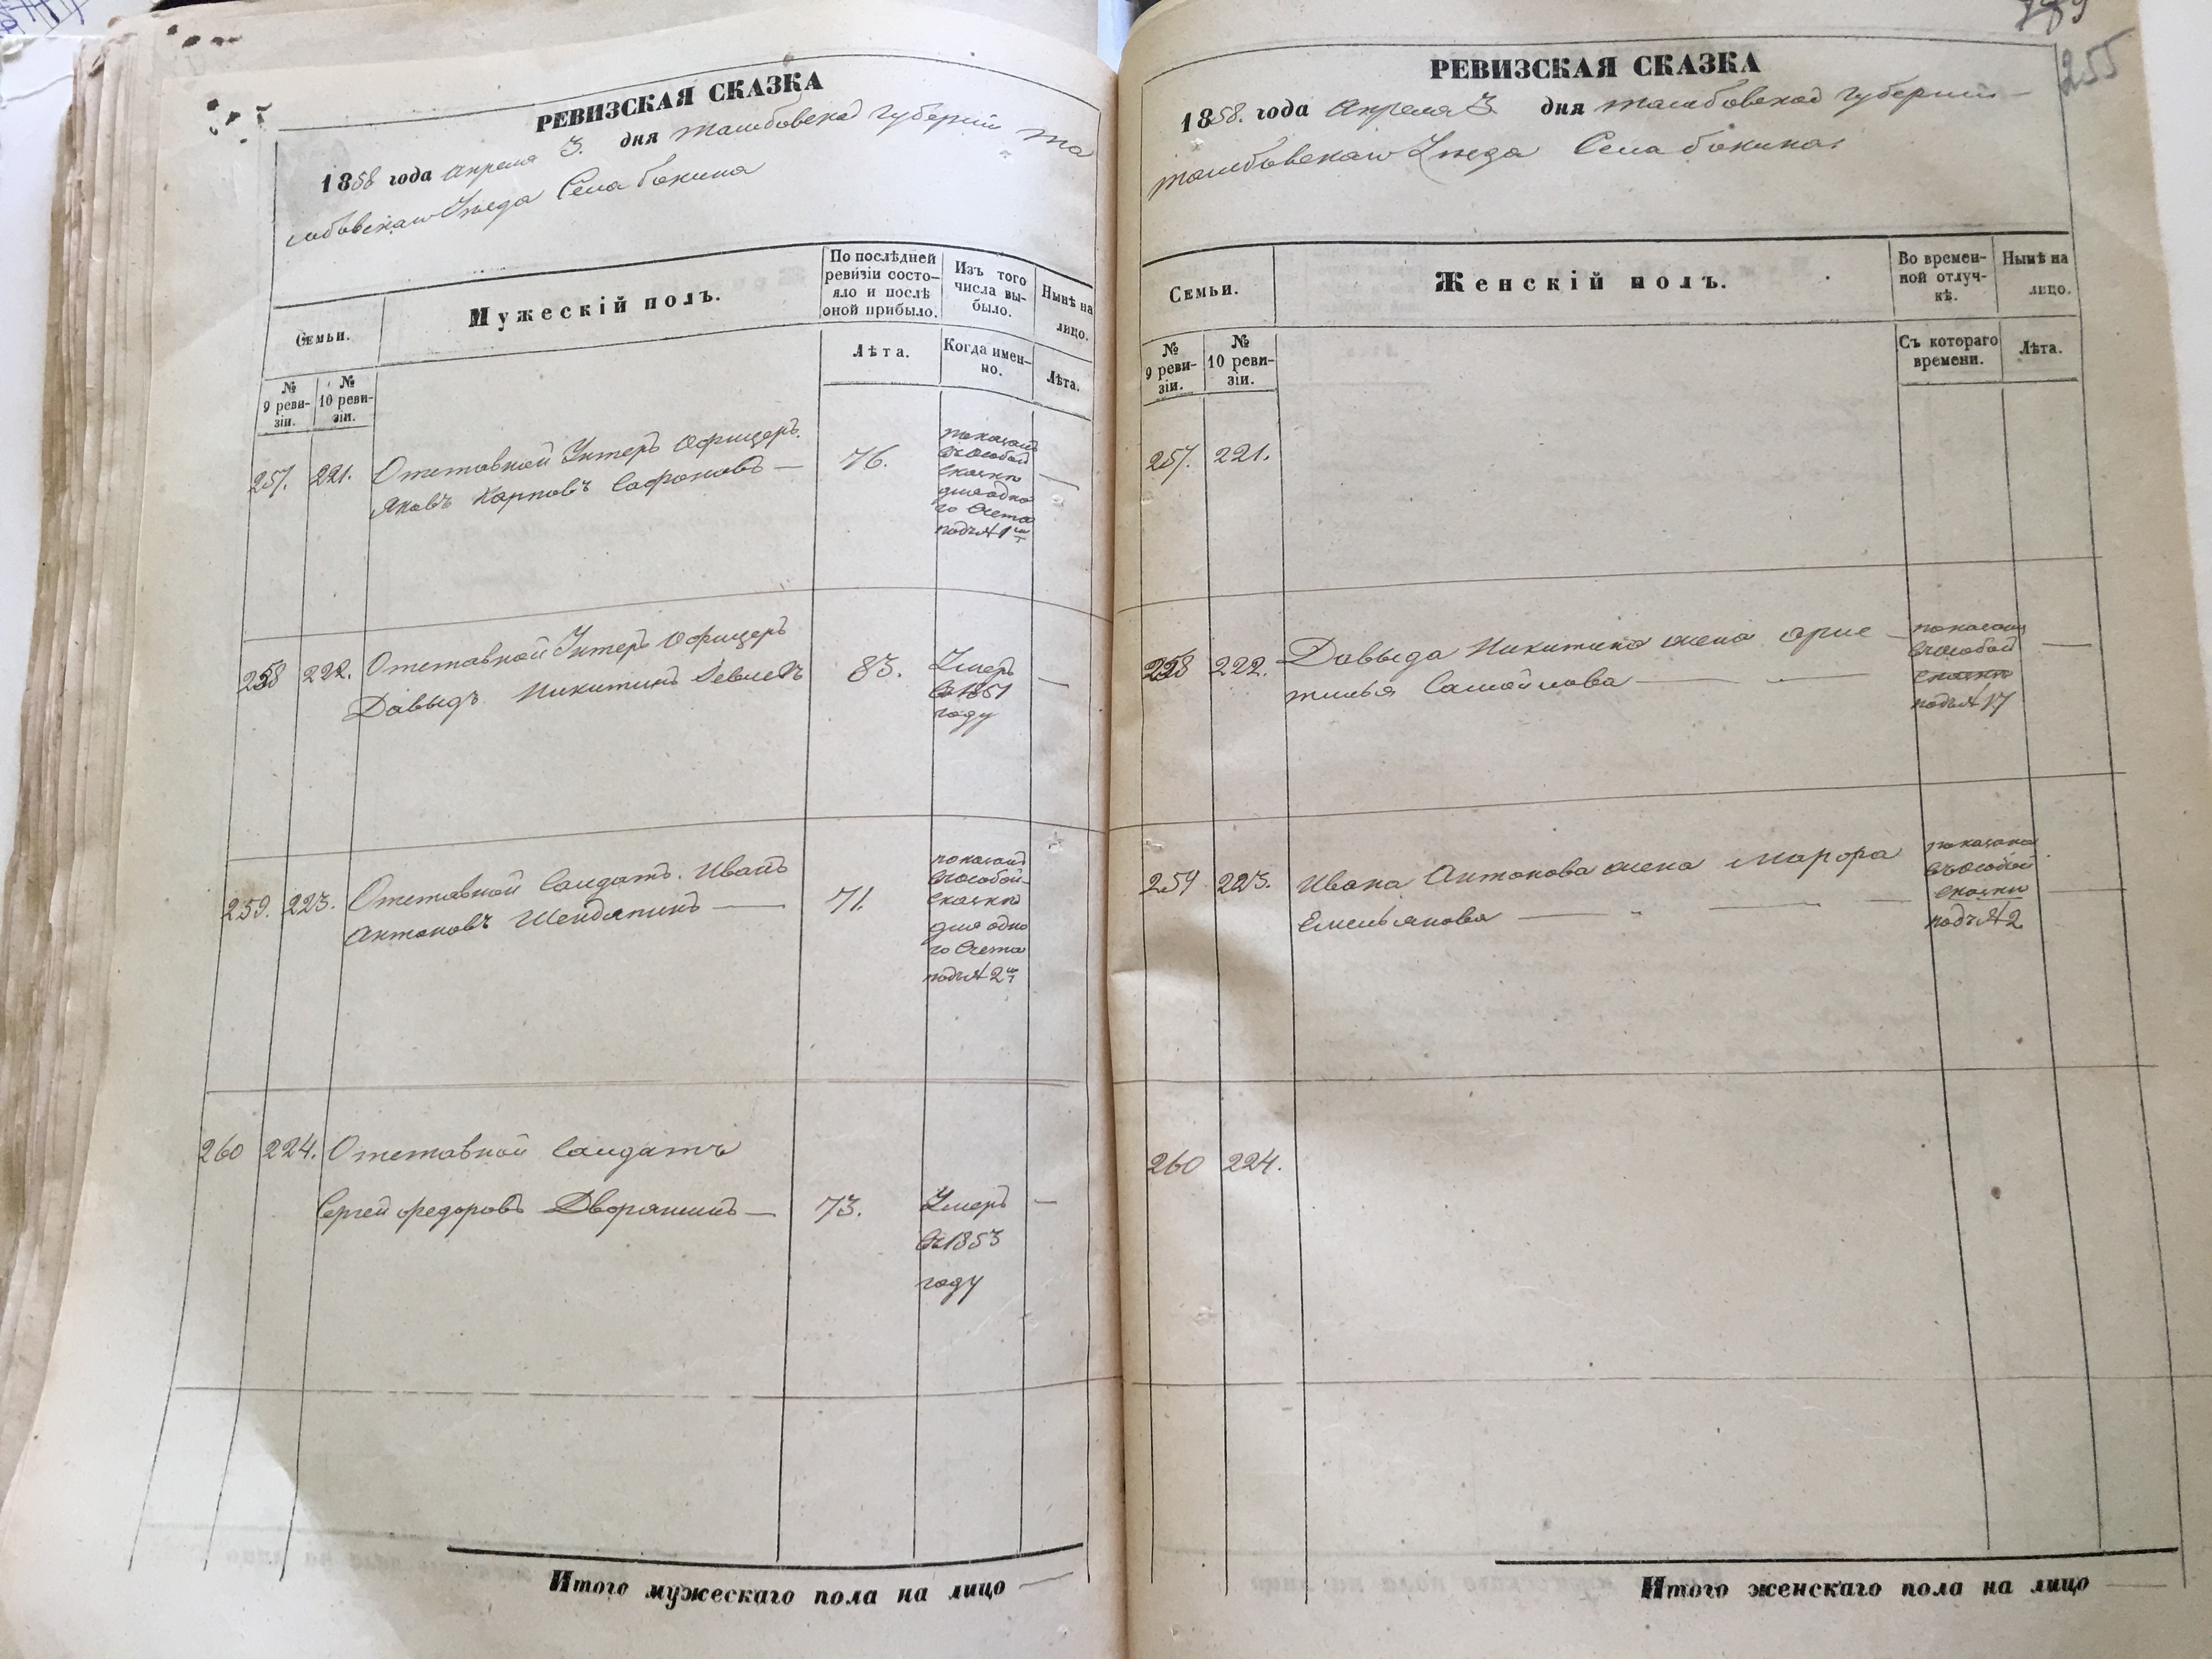 РЕВИЗСКАЯ СКАЗКА
1858 года Апреля 3. дня Тамбовской Губернiи Та
мбовскаго Уѣзда Села Бокина
Семьи.
Мужескiй полъ.
По послѣдней
ревизiи состо-
яло и послѣ
оной прибыло.
Изъ того
числа вы-
было.
Нынѣ на
лицо.
№
9 реви-
зiи.
№
10 реви-
зiи.
Лѣта.
Когда имен-
но.
Лѣта.
257. 221. Отставной Унтеръ Офицеръ
Яковъ Карповъ Сафоновъ — 76.
показанъ
въ особой
сказкѣ
для одно
го счета
подъ № 1мъ
258 222. Отставной Унтеръ Офицеръ
Давыдъ Никитинъ 83. —
Умеръ
въ 1851
году
259. 223. Отставной Солдатъ Иванъ
Антоновъ — 71.
показанъ
въ особой
сказкѣ
для одно
го счета
подъ № 2мъ
260 224. Отставной Солдатъ
Сергей Федоровъ Дворянинъ — 73. —
Умеръ
въ 1853
году
Итого мужескаго пола на лицо —
255
РЕВИЗСКАЯ СКАЗКА
1858. года Апреля 3 дня Тамбовской Губернiи
Тамбовскаго Уѣзда Села Бокина
Семьи.
Женскiй полъ.
Во времен-
ной отлуч-
кѣ.
Нынѣ на
лицо.
№
9 реви-
зiи.
№
10 реви-
зiи.
Съ котораго
времени.
Лѣта.
257. 221.
258 222. Давыда Никитина жена
Самойлова —
показана
въ особой
сказкѣ
подъ № 17
259 223. Ивана Антонова жена Марфа
Емельянова —
показана
въ особой
сказкѣ
подъ № 2
260 224.
Итого женскаго пола на лицо —